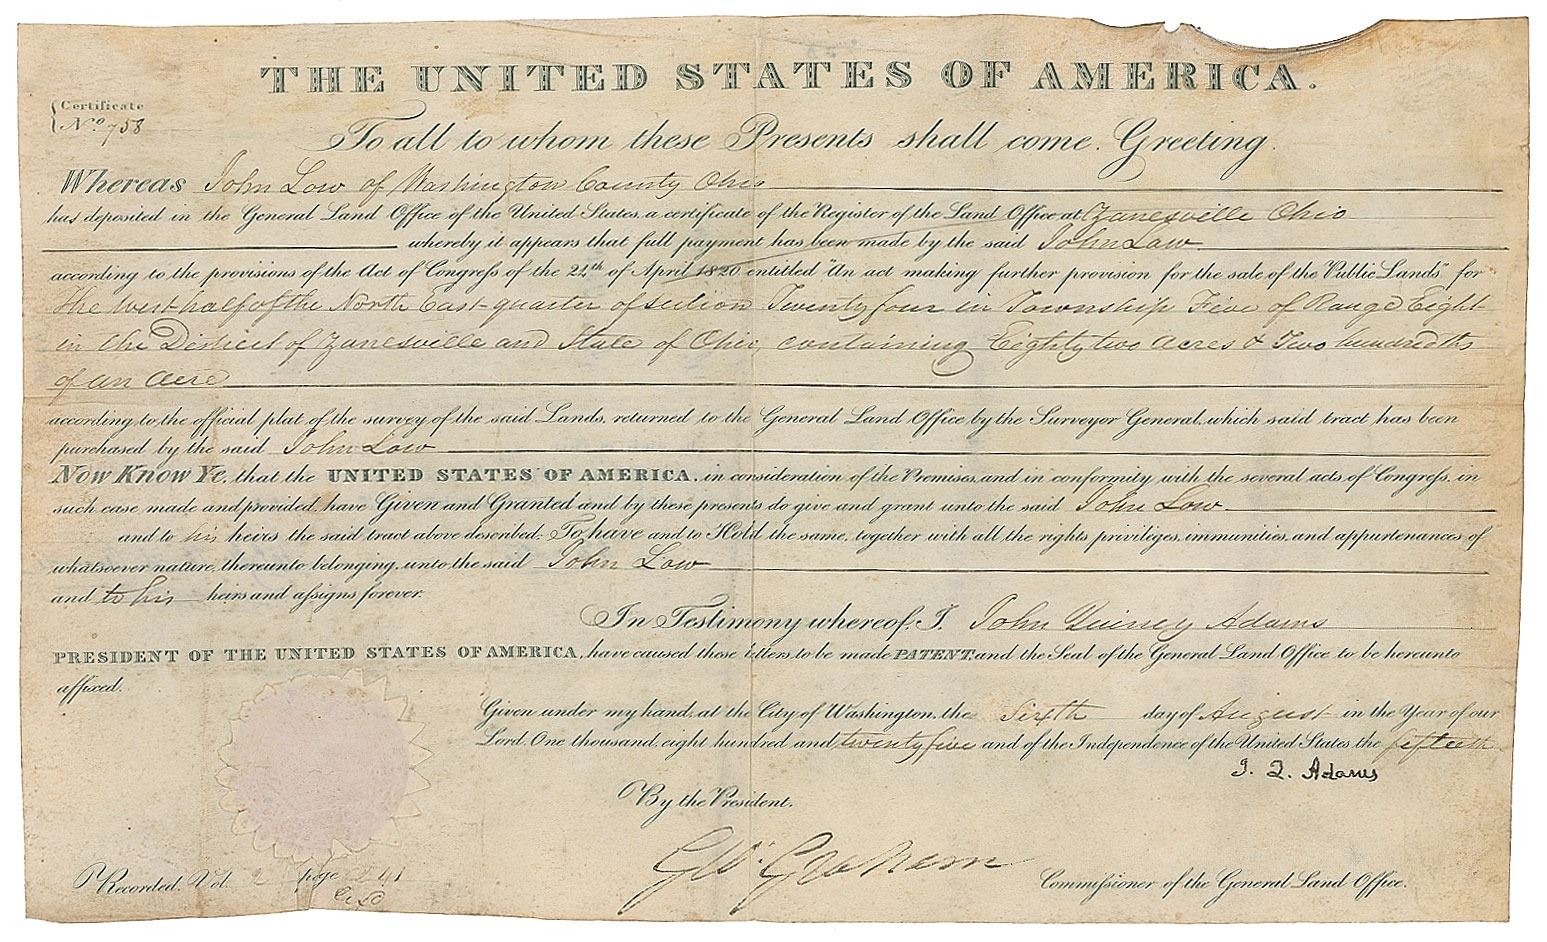 THE UNITED STATES OF AMERICA.
Certificate
No. 758
To all to whom these Presents shall come. Greeting.
Whereas John Low of Washington County Ohio
has deposited in the General Land Office of the United States, a certificate of the Register of the Land Office at Zanesville Ohio
whereby it appears that full payment has been made by the said John Low
according to the provisions of the Act of Congress of the 24th of April 1820 entitled "An act making further provision for the sale of the Public Lands" for
the west half of the North East quarter of section Twenty four in Township Five of Range Eight
in the District of Zanesville and State of Ohio, containing Eighty two acres & Two hundredths
of an acre
according to the official plat of the survey of the said Lands, returned to the General Land Office by the Surveyor General, which said tract has been
purchased by the said John Low
Now Know Ye, that the UNITED STATES OF AMERICA, in consideration of the Premises, and in conformity with the several acts of Congress, in
such case made and provided, have Given and Granted and by these presents do give and grant unto the said John Low
and to his heirs the said tract above described: To have and to Hold the same, together with all the rights, privileges, immunities, and appurtenances of
whatsoever nature, thereunto belonging, unto the said John Low
and to his heirs and assigns forever.
In Testimony whereof, I, John Quincy Adams
PRESIDENT OF THE UNITED STATES OF AMERICA, have caused these letters to be made PATENT, and the Seal of the General Land Office to be hereunto
affixed.
Given under my hand, at the City of Washington, the sixth day of August in the Year of our
Lord, One thousand, eight hundred and twenty five and of the Independence of the United States the fiftieth
J. Q. Adams
By the President.
Geo: Graham
Commissioner of the General Land Office.
Recorded. Vol. 2 page 241